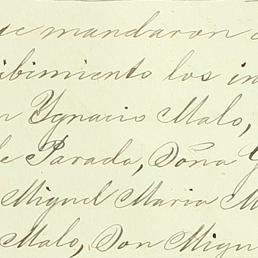 ue mandaron
ibimiento los in
n Ygnacio Malo,
e Parada, Doña G
Miguel Maria M
Malo, Don Migu